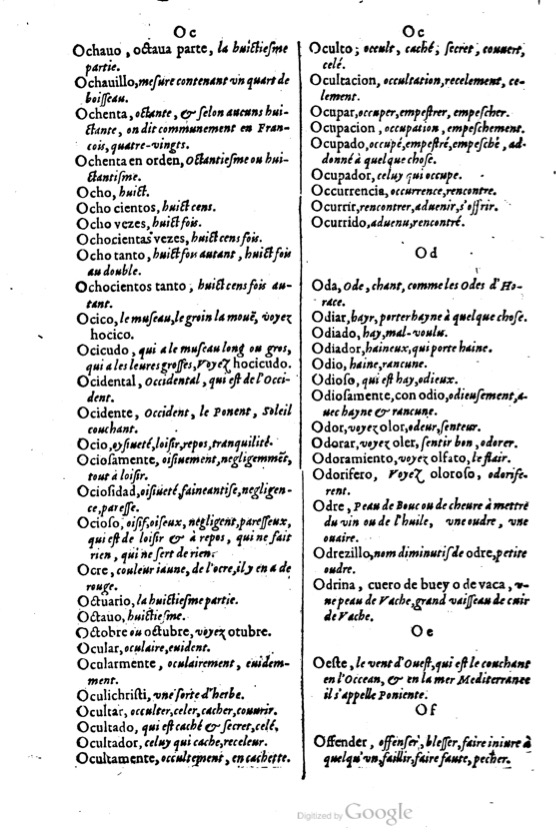 Oc
Ochauo, octaua parte, la huictiesme
partie.
Ochauillo, mesure contenant vn quart de
boisseau.
Ochenta, octante, & selon aucuns hui-
ctante, on dit communement en Fran-
cois, quatre-vingts.
Ochenta en orden, Octantiesme ou hui-
ctantisme.
Ocho, huict.
Ocho cientos, huict cens.
Ocho vezes, huict fois.
Ochocientas vezes, huict cens fois.
Ocho tanto, huict fois autant, huict fois
au double.
Ochocientos tanto; huict cens fois au-
tant.
Ocico, le museau, le groin la mouë, voyez
hocico.
Ocicudo, qui a le museau long ou gros,
qui a les leures grosses, Voyez hocicudo.
Ocidental, Occidental, qui est de l'Occi-
dent.
Ocidente, Occident, le Ponent, Soleil
couchant.
Ocio, oysiueté, loisir, repos, tranquilité.
Ociosamente, oisiuement, negligemmēt,
tout à loisir.
Ociosidad, oisiueté, faineantise, negligen-
ce, paresse.
Ocioso, oisif, oiseux, negligent, paresseux,
qui est de loisir & à repos, qui ne fait
rien, qui ne sert de rien.
Ocre, couleur iaune, de l'ocre, il y en a de
rouge.
Octuario, la huictiesme partie.
Octauo, huictiesme.
Octobre ou octubre, voyez otubre.
Ocular, oculaire, euident.
Ocularmente, oculairement, euidem-
ment.
Oculichristi, vne sorte d'herbe.
Ocultar, occulter, celer, cacher, couurir.
Ocultado, qui est caché & secret, celé.
Ocultador, celuy qui cache, receleur.
Ocultamente, occultement, en cachette.
Oc
Oculto; occult, caché; secret, couuert,
celé.
Ocultacion, occultation, recelement, ce-
lement.
Ocupar, occuper, empestrer, empescher.
Ocupacion, occupation, empeschement.
Ocupado, occupé, empestré, empesché, ad-
donné à quelque chose.
Ocupador, celuy qui occupe.
Occurrencia, occurrence, rencontre.
Ocurrir, rencontrer, aduenir, s'offrir.
Ocurrido, aduenu, rencontré.
Od
Oda, Ode, chant, comme les Odes d'Ho-
race.
Odiar, hayr, porter hayne à quelque chose.
Odiado, hay, mal-voulu.
Odiador, haineux, qui porte haine.
Odio, haine, rancune.
Odioso, qui est hay, odieux.
Odiosamente, con odio, odieusement, a-
uec hayne & rancune.
Odor, voyez olor, odeur, senteur.
Odorar, voyez oler, sentir bon, odorer.
Odoramiento, voyez olfato, le flair.
Odorifero, Voyez oloroso, odorife-
rent.
Odre, Peau de Bouc ou de cheure à mettre
du vin ou de l'huile, vne oudre, vne
ouaire.
Odrezillo, nom diminutif de odre, petite
oudre.
Odrina, cuero de buey o de vaca, v-
ne peau de Vache, grand vaisseau de cuir
de Vache.
Oe
Oeste, le vent d'Ouest, qui est le couchant
en l'Occean, & en la mer Mediterranee
il s'appelle Poniente.
Of
Offender, offenser, blesser, faire iniure à
quelqu'vn, faillir, faire faute, pecher.
Digitized by Google